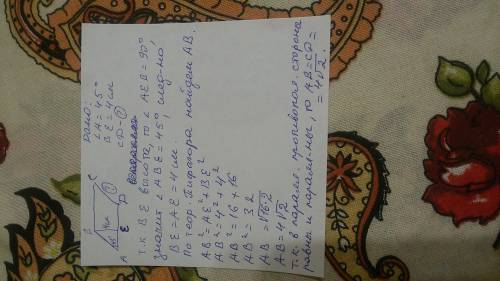 Дано:
∠A = 45°
BE = 4 см
CD - ?
B C
45° 4см ?
A E D
т.к. BE высота, то ∠AEB = 90°
значит ∠ABE = 45°, след-но,
BE = AE = 4 см.
По теор. Пифагора найдем AB.
AB² = AE² + BE²
AB² = 4² + 4²
AB² = 16 + 16
AB² = 32
AB = √16·2
AB = 4√2
т.к. в паралел. противопол. сторона
равны и паралельны, то AB = CD =
= 4√2.